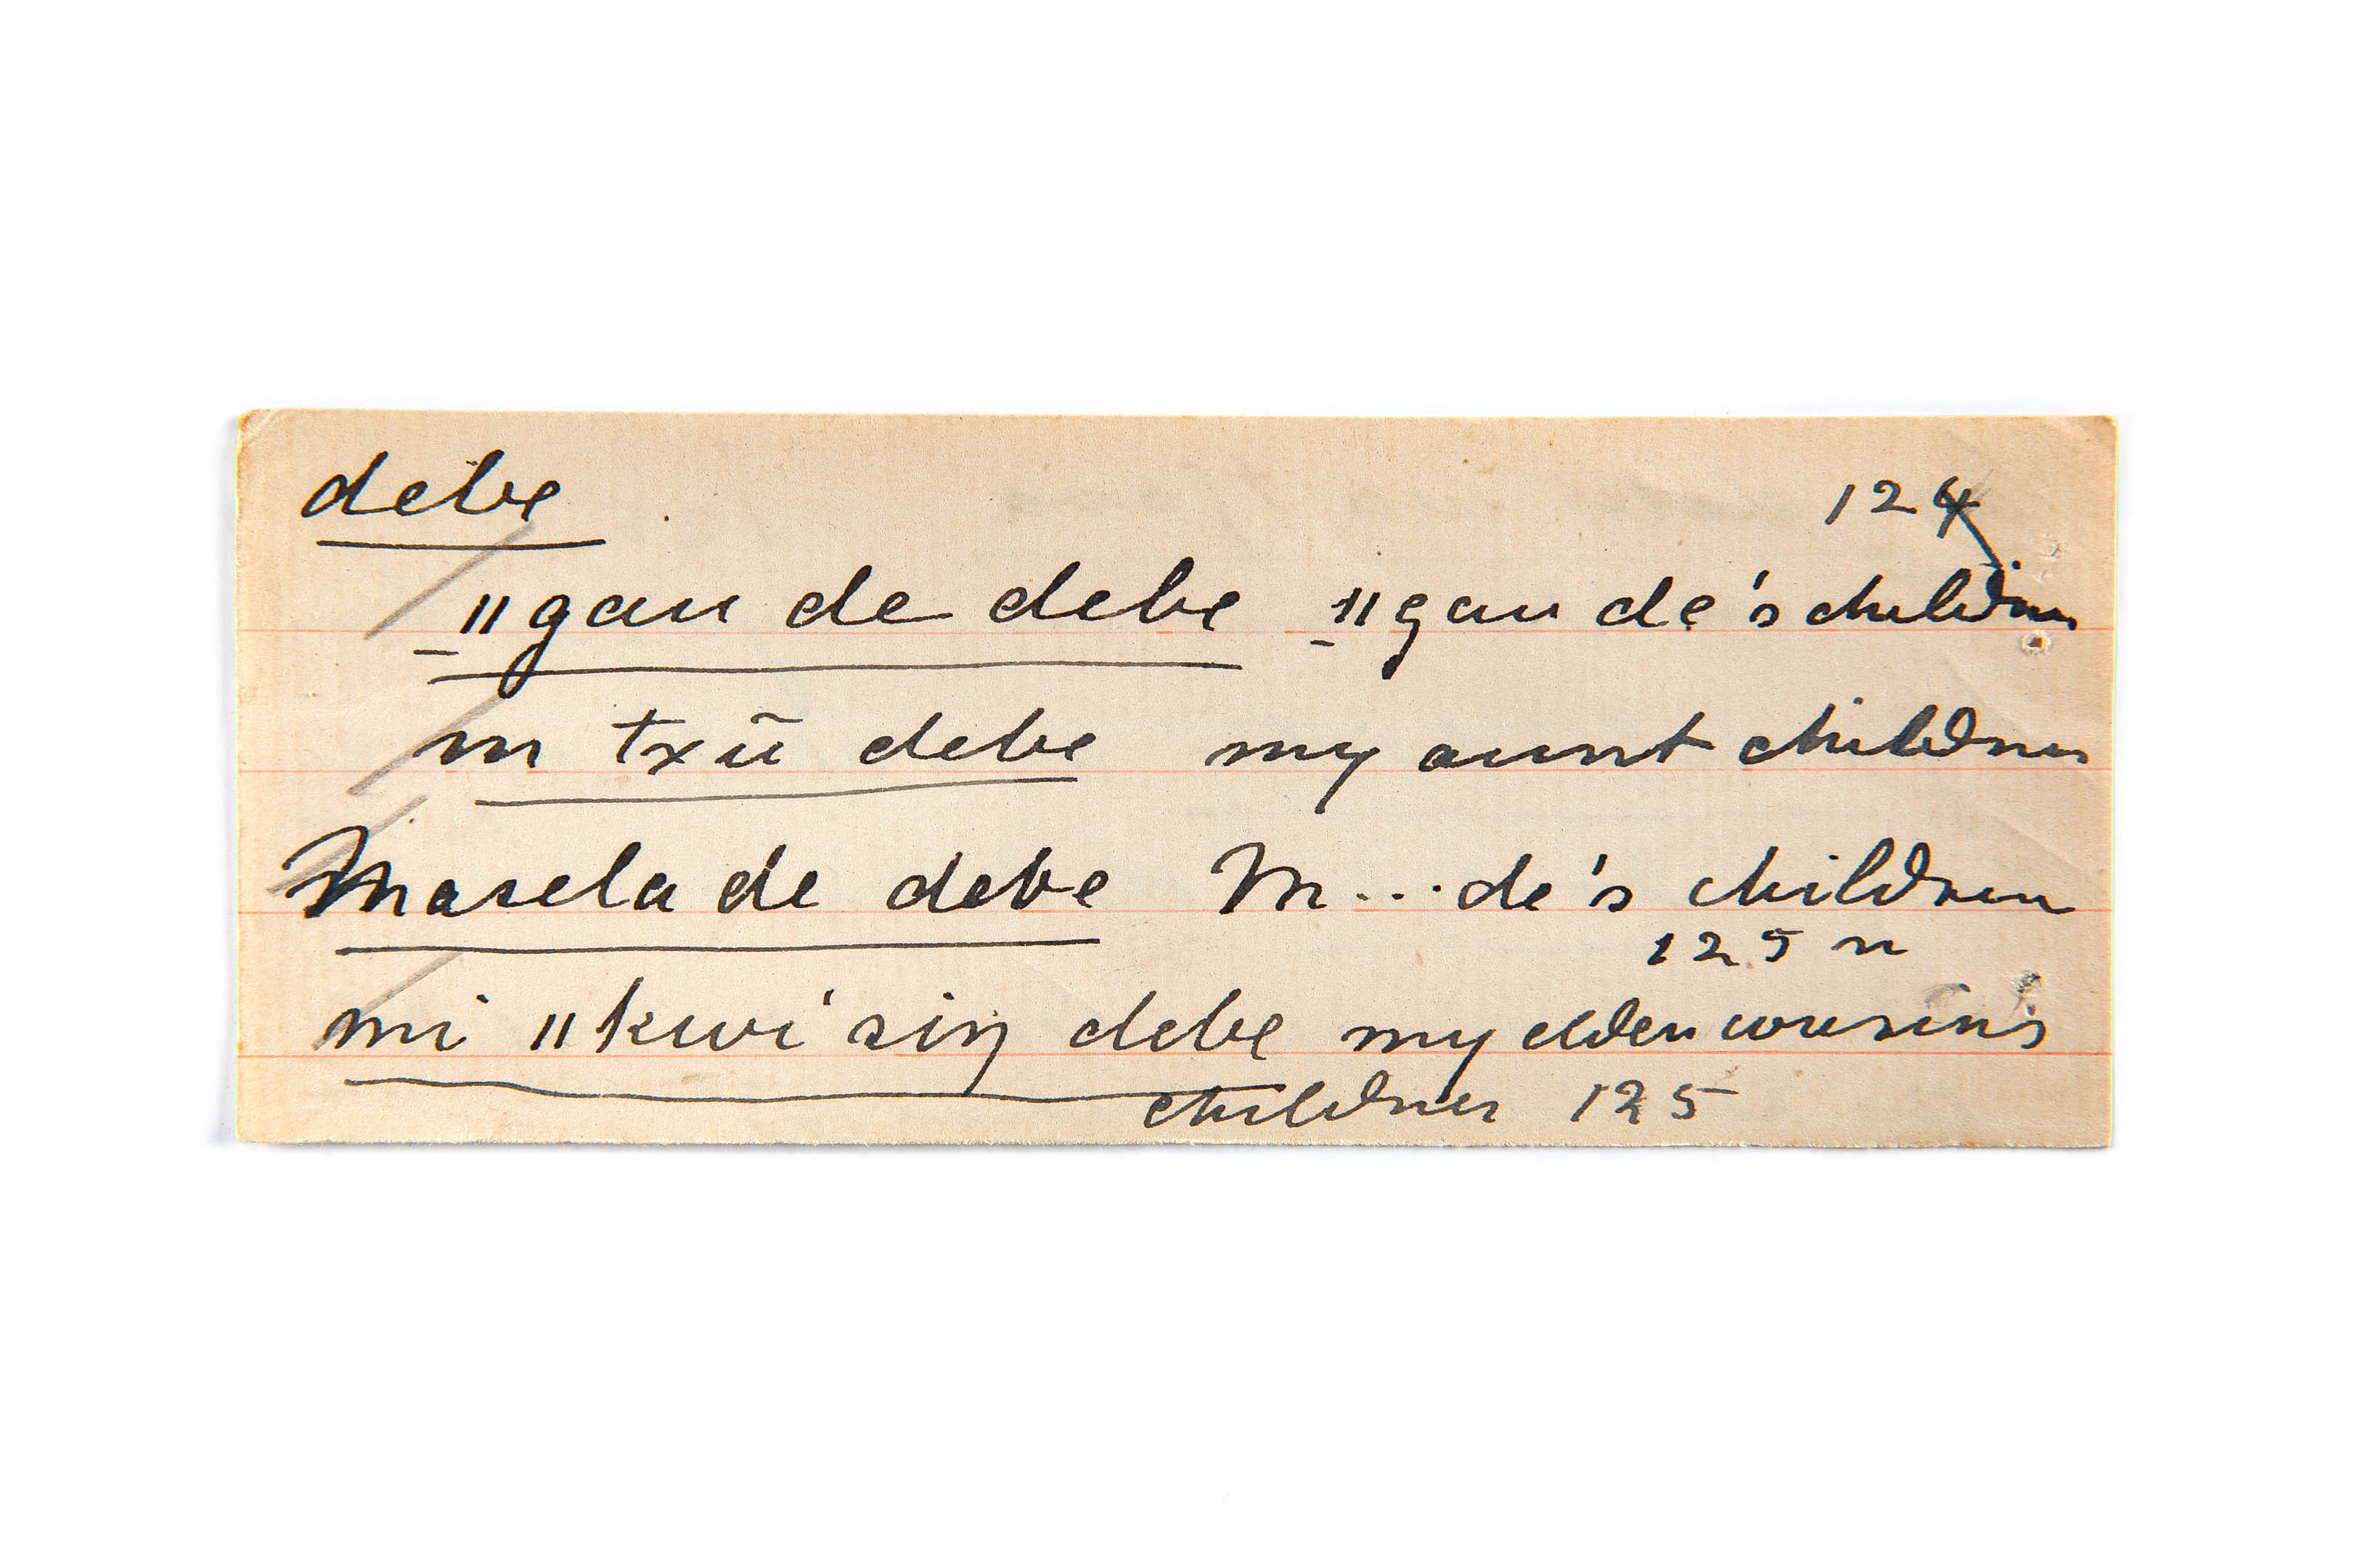 debe 124
_ ǁgau de debe _ ǁgau de's children
m txũ debe my aunt children
Masela de debe M... de's children
125 n
mi ǁkwi siŋ debe my elder cousin's
children 125